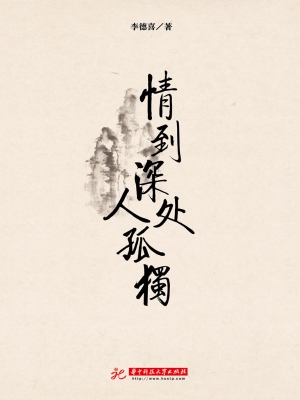 李德喜／著
情到深处人孤獨
华中科技大学出版社
http://www.hustp.com